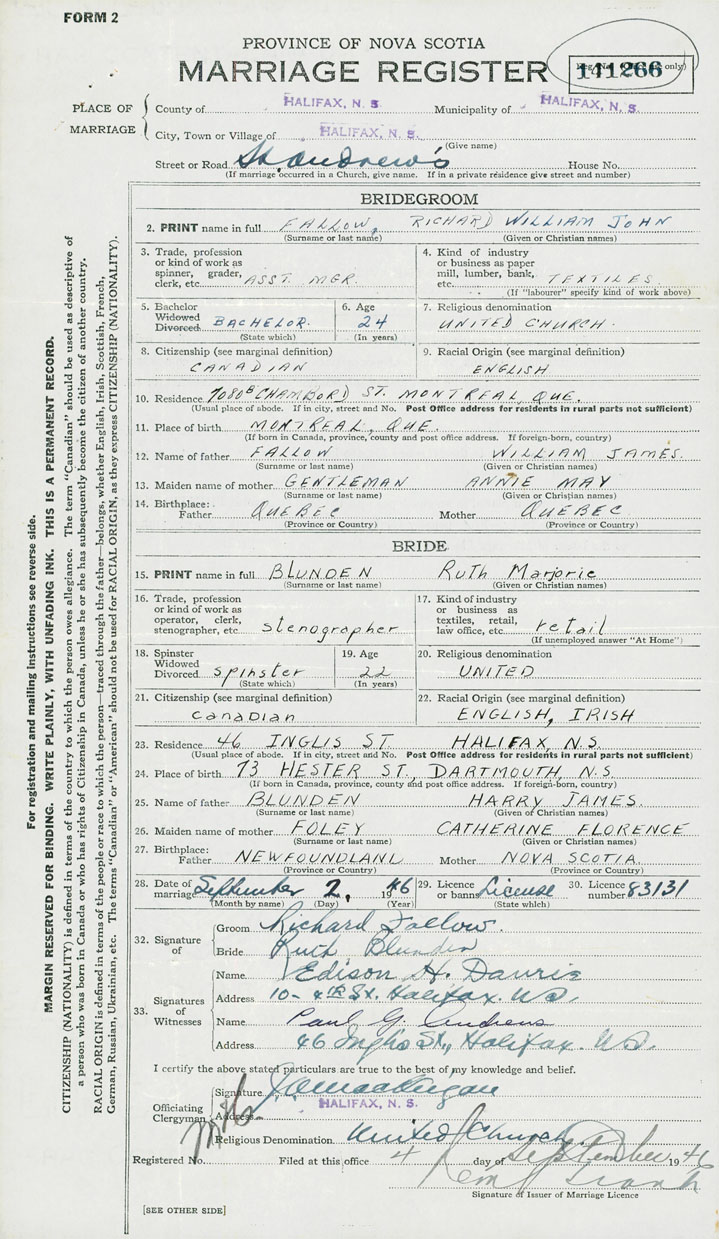 FORM 2
PROVINCE OF NOVA SCOTIA
MARRIAGE REGISTER
141266
PLACE OF MARRIAGE
County of HALIFAX, N. S. Municipality of HALIFAX, N. S.
City, Town or Village of HALIFAX, N. S.
(Give name)
Street or Road St. Andrew's House No.
(If marriage occurred in a Church, give name. If in a private residence give street and number)
BRIDEGROOM
2. PRINT name in full FALLOW, RICHARD WILLIAM JOHN
(Surname or last name) (Given or Christian names)
3. Trade, profession or kind of work as spinner, grader, clerk, etc. ASST. MGR.
4. Kind of industry or business as paper mill, lumber, bank, etc. TEXTILES
(If "labourer" specify kind of work above)
5. Bachelor Widowed Divorced BACHELOR.
(State which)
6. Age 24
(In years)
7. Religious denomination UNITED CHURCH.
8. Citizenship (see marginal definition) CANADIAN
9. Racial Origin (see marginal definition) ENGLISH
10. Residence 7080B CHAMBORD ST. MONTREAL, QUE.
(Usual place of abode. If in city, street and No. Post Office address for residents in rural parts not sufficient)
11. Place of birth MONTREAL, QUE.
(If born in Canada, province, county and post office address. If foreign-born, country)
12. Name of father FALLOW WILLIAM JAMES.
(Surname or last name) (Given or Christian names)
13. Maiden name of mother GENTLEMAN ANNIE MAY
(Surname or last name) (Given or Christian names)
14. Birthplace: Father QUEBEC Mother QUEBEC
(Province or Country) (Province or Country)
BRIDE
15. PRINT name in full BLUNDEN Ruth Marjorie
(Surname or last name) (Given or Christian names)
16. Trade, profession or kind of work as operator, clerk, stenographer, etc. stenographer
17. Kind of industry or business as textiles, retail, law office, etc. retail
(If unemployed answer "At Home")
18. Spinster Widowed Divorced spinster
(State which)
19. Age 22
(In years)
20. Religious denomination UNITED
21. Citizenship (see marginal definition) Canadian
22. Racial Origin (see marginal definition) ENGLISH, IRISH
23. Residence 46 INGLIS ST. HALIFAX, N.S.
(Usual place of abode. If in city, street and No. Post Office address for residents in rural parts not sufficient)
24. Place of birth 73 HESTER ST., DARTMOUTH, N.S.
(If born in Canada, province, county and post office address. If foreign-born, country)
25. Name of father BLUNDEN HARRY JAMES.
(Surname or last name) (Given or Christian names)
26. Maiden name of mother FOLEY CATHERINE FLORENCE
(Surname or last name) (Given or Christian names)
27. Birthplace: Father NEWFOUNDLAND Mother NOVA SCOTIA
(Province or Country) (Province or Country)
28. Date of marriage September 2, 1946
(Month by name) (Day) (Year)
29. Licence or banns License
(State which)
30. Licence number 83131
32. Signature of
Groom Richard Fallow.
Bride Ruth Blunden
33. Signatures of Witnesses
Name Edison H.
Address 10- 4th St. Halifax. N.S.
Name Paul G. Andrews
Address 46 Inglis St., Halifax. N.S.
I certify the above stated particulars are true to the best of my knowledge and belief.
Officiating Clergyman
Signature
Address HALIFAX, N. S.
Religious Denomination United Church
Registered No. Filed at this office 4 day of September 1946
Signature of Issuer of Marriage Licence
[SEE OTHER SIDE]
For registration and mailing instructions see reverse side.
MARGIN RESERVED FOR BINDING. WRITE PLAINLY, WITH UNFADING INK. THIS IS A PERMANENT RECORD.
CITIZENSHIP (NATIONALITY) is defined in terms of the country to which the person owes allegiance. The term "Canadian" should be used as descriptive of
a person who was born in Canada or who has rights of Citizenship in Canada, unless he or she has subsequently become the citizen of another country.
RACIAL ORIGIN is defined in terms of the people or race to which the person—traced through the father—belongs, whether English, Irish, Scottish, French,
German, Russian, Ukrainian, etc. The terms "Canadian" or "American" should not be used for RACIAL ORIGIN, as they express CITIZENSHIP (NATIONALITY).